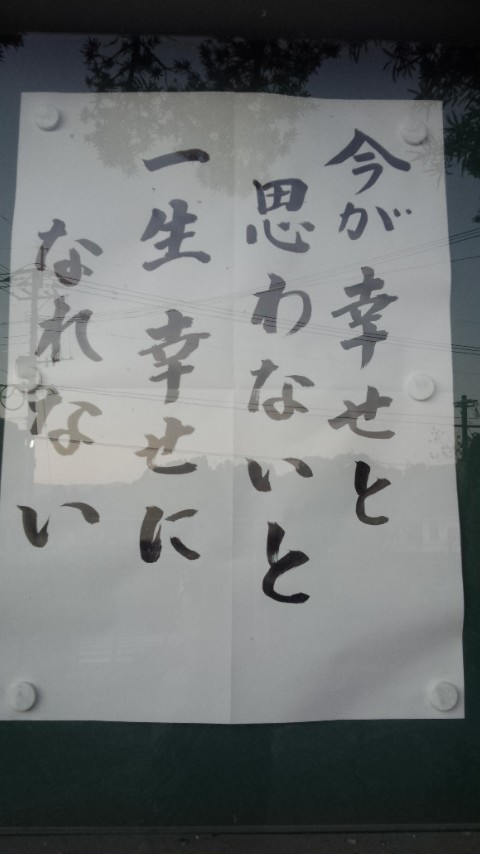 今が 幸せと
思わないと
一生 幸せに
なれない